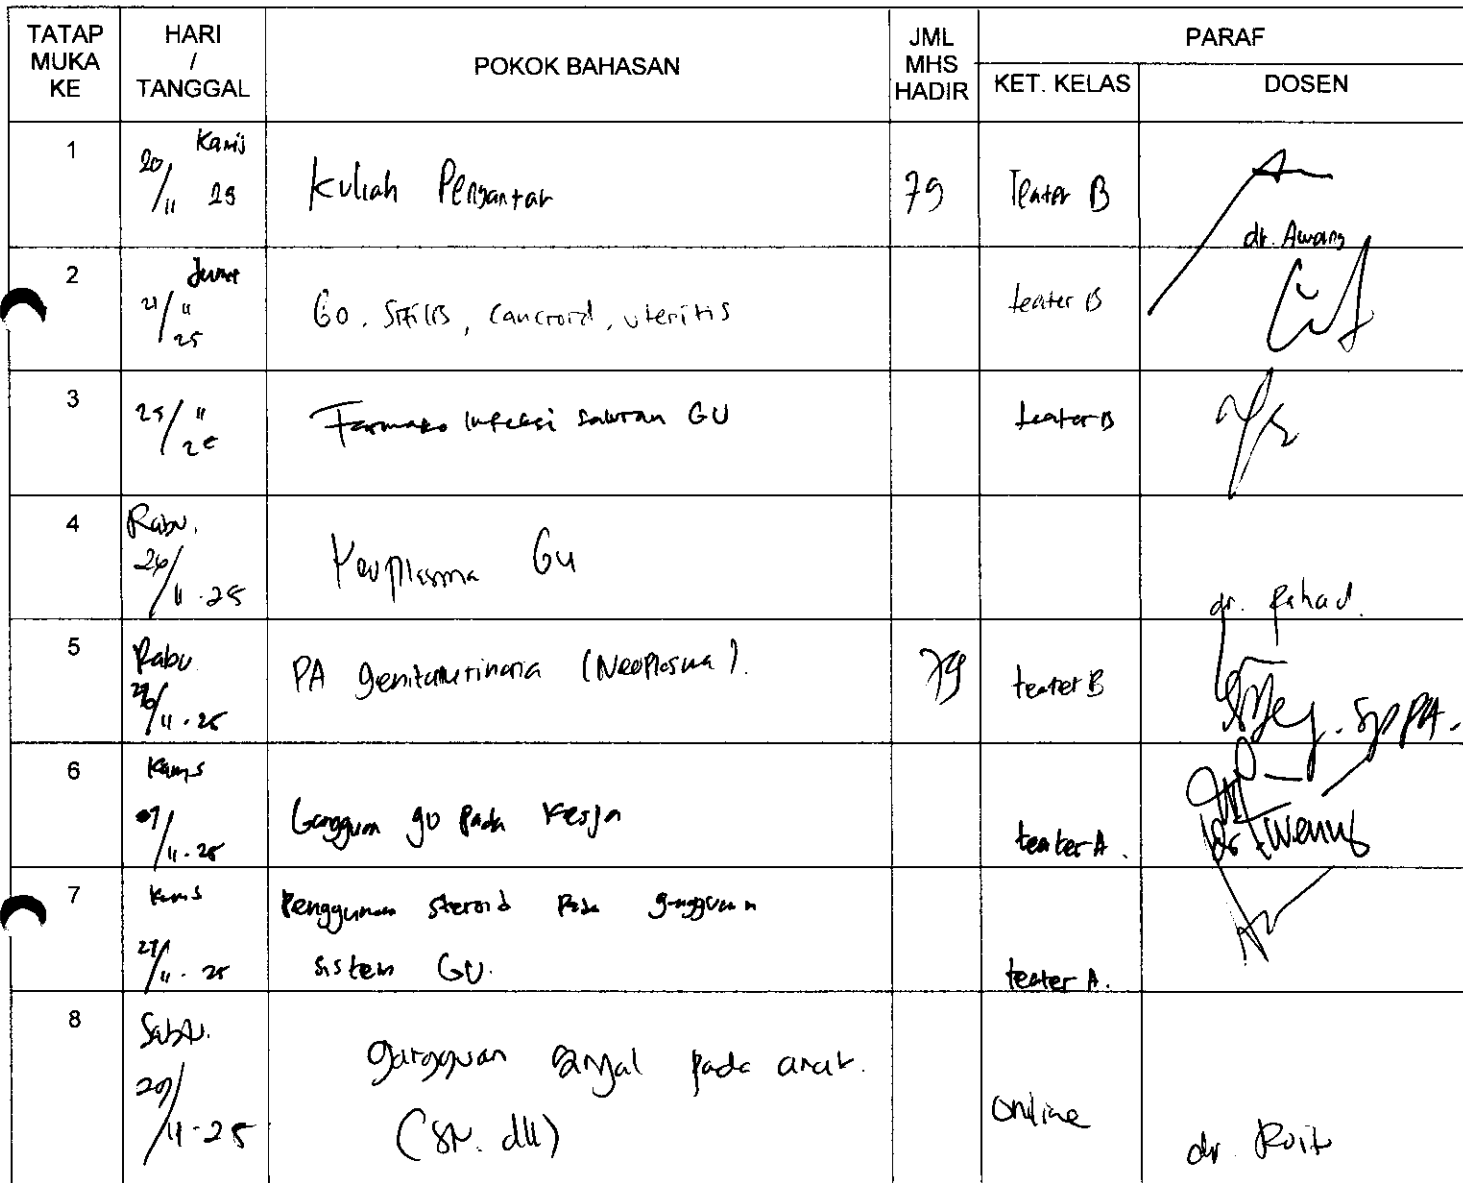 TATAP MUKA KE
HARI / TANGGAL
POKOK BAHASAN
JML MHS HADIR
PARAF
KET. KELAS
DOSEN
1
Kamis
20/11 25
Kuliah Pengantar
79
Teater B
dr. Awang
2
Jumat
21/11 25
GO, Sifilis, Cancroid, uteritis
teater B
3
25/11 25
Farmako Infeksi saluran GU
teater B
4
Rabu.
26/11-25
Neoplasma GU
5
Rabu
26/11-25
PA genitaurinaria (Neoplasma).
79
teater B
dr. Fahad.
SpPA.
6
Kamis
27/11-25
Gangguan GU Pada Kerja
teater A.
7
Kamis
27/11-25
Penggunaan steroid Pada gangguan
sistem GU.
teater A.
8
Sabtu.
29/11-25
gangguan ginjal pada anak.
(SN. dll)
online
dr.